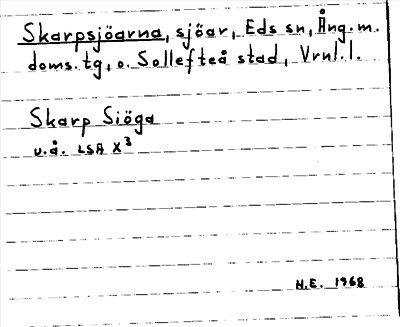 Skarpsjöarna, sjöar, Eds sn, Ång.m.
doms.tg, o. Sollefteå stad, Vrnl.l.
Skarp Siöga
u.å. LSA X³
H.E. 1968